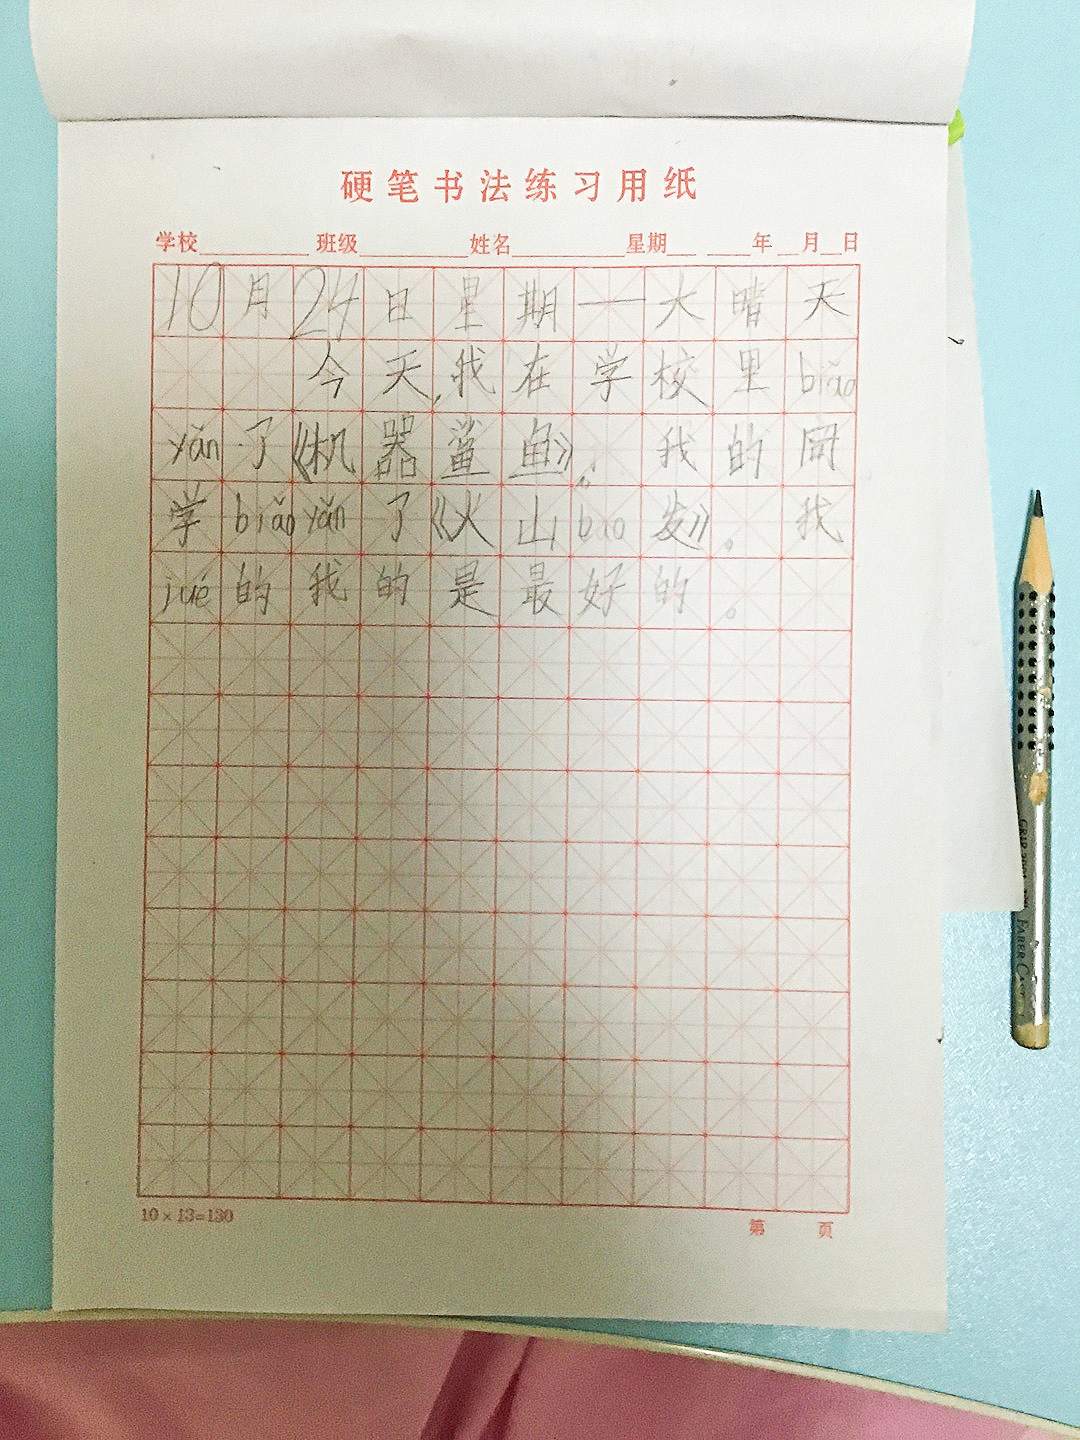 硬笔书法练习用纸
学校 班级 姓名 星期 年 月 日
10月24日星期一大晴天
今天,我在学校里biǎo
yǎn了《机器鲨鱼》。我的同
学biǎoyǎn了《火山bào发》。我
jué的我的是最好的。
10×13=130
第 页